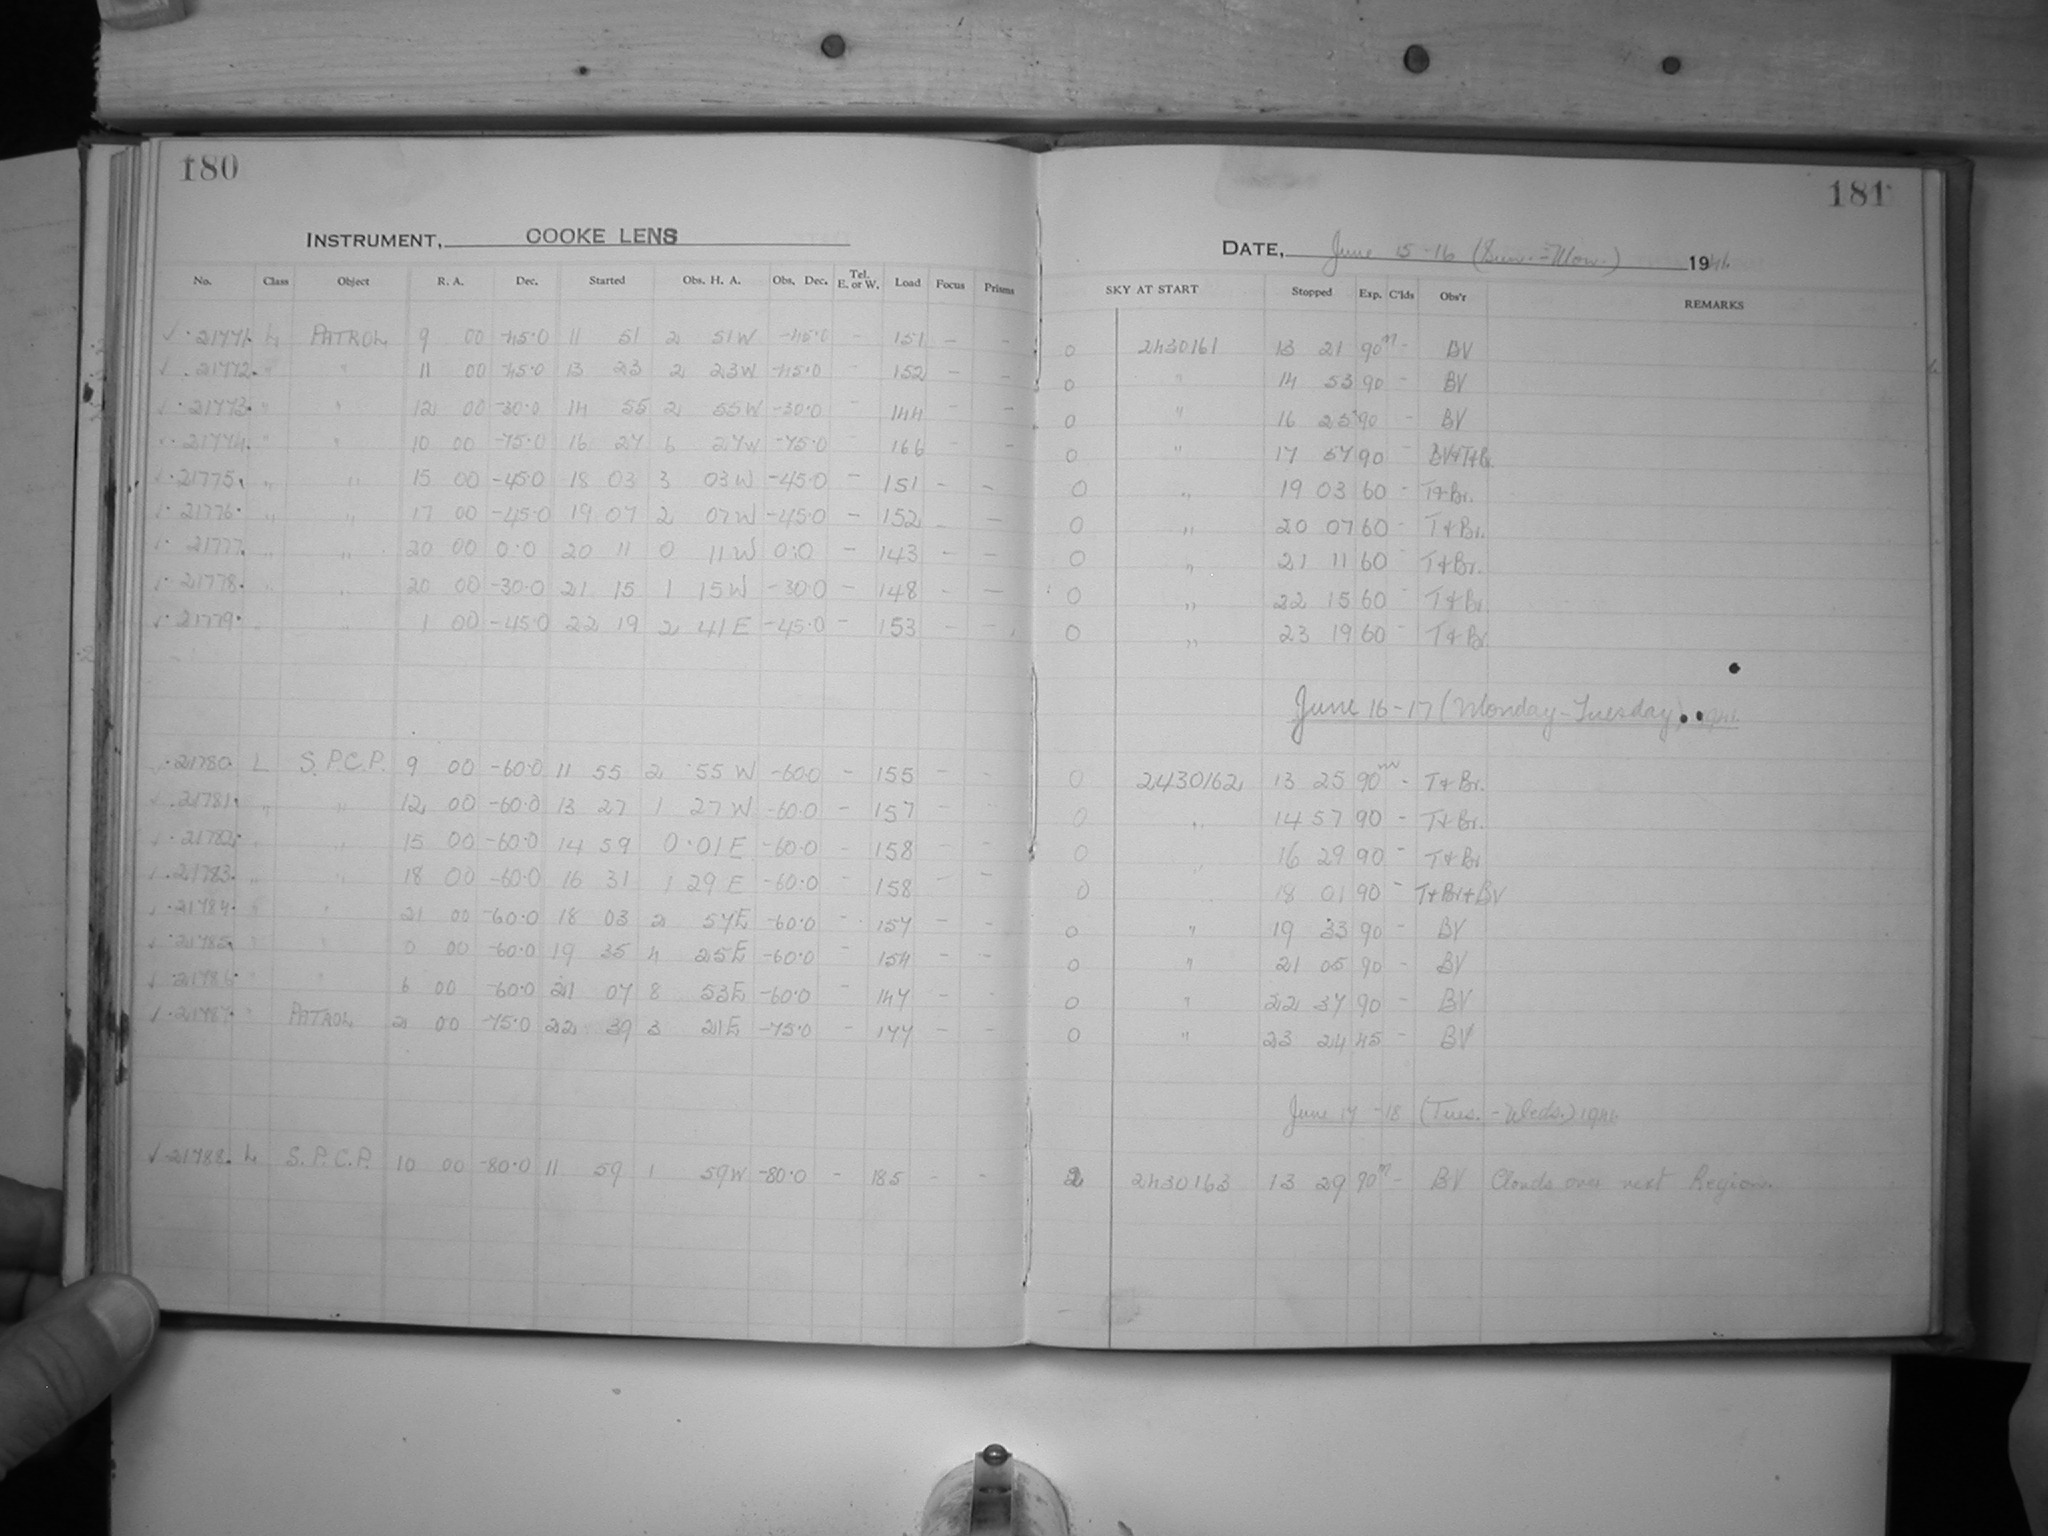 180
INSTRUMENT, COOKE LENS
No. Class Object R. A. Dec. Started Obs. H. A. Obs. Dec. Tel. E. or W. Load Focus Prisms
✓ 21771 L PATROL 9 00 -45.0 11 51 2 51W -45.0 - 151 - -
✓ 21772 " " 11 00 -45.0 13 23 2 23W -45.0 - 152 - -
✓ 21773 " " 12 00 -30.0 14 55 2 55W -30.0 - 144 - -
✓ 21774 " " 10 00 -75.0 16 27 6 27W -75.0 - 166 - -
✓ 21775 " " 15 00 -45.0 18 03 3 03W -45.0 - 151 - -
✓ 21776 " " 17 00 -45.0 19 07 2 07W -45.0 - 152 - -
✓ 21777 " " 20 00 0.0 20 11 0 11W 0.0 - 143 - -
✓ 21778 " " 20 00 -30.0 21 15 1 15W -30.0 - 148 - -
✓ 21779 " " 1 00 -45.0 22 19 2 41E -45.0 - 153 - -
✓ 21780 L S.P.C.P. 9 00 -60.0 11 55 2 55W -60.0 - 155 - -
✓ 21781 " " 12 00 -60.0 13 27 1 27W -60.0 - 157 - -
✓ 21782 " " 15 00 -60.0 14 59 0 01E -60.0 - 158 - -
✓ 21783 " " 18 00 -60.0 16 31 1 29E -60.0 - 158 - -
✓ 21784 " " 21 00 -60.0 18 03 2 57E -60.0 - 157 - -
✓ 21785 " " 0 00 -60.0 19 35 4 25E -60.0 - 154 - -
✓ 21786 " " 6 00 -60.0 21 07 8 53E -60.0 - 147 - -
✓ 21787 " PATROL 2 00 -75.0 22 39 3 21E -75.0 - 177 - -
✓ 21788 L S.P.C.P. 10 00 -80.0 11 59 1 59W -80.0 - 185 - -
181
DATE, June 15-16 (Sun.-Mon.) 1941
SKY AT START Stopped Exp. C'lds Obs'r REMARKS
0 2430161 13 21 90m - BV
0 " 14 53 90 - BV
0 " 16 25 90 - BV
0 " 17 57 90 - BV+T+Br.
0 " 19 03 60 - T+Br.
0 " 20 07 60 - T+Br.
0 " 21 11 60 - T+Br.
0 " 22 15 60 - T+Br.
0 " 23 19 60 - T+Br.
June 16-17 (Monday-Tuesday) 1941
0 2430162 13 25 90m - T+Br.
0 " 14 57 90 - T+Br.
0 " 16 29 90 - T+Br
0 18 01 90 - T+Br+BV
0 " 19 33 90 - BV
0 " 21 05 90 - BV
0 " 22 37 90 - BV
0 " 23 24 45 - BV
June 17-18 (Tues.-Weds.) 1941
2 2430163 13 29 90m - BV Clouds over next Region.